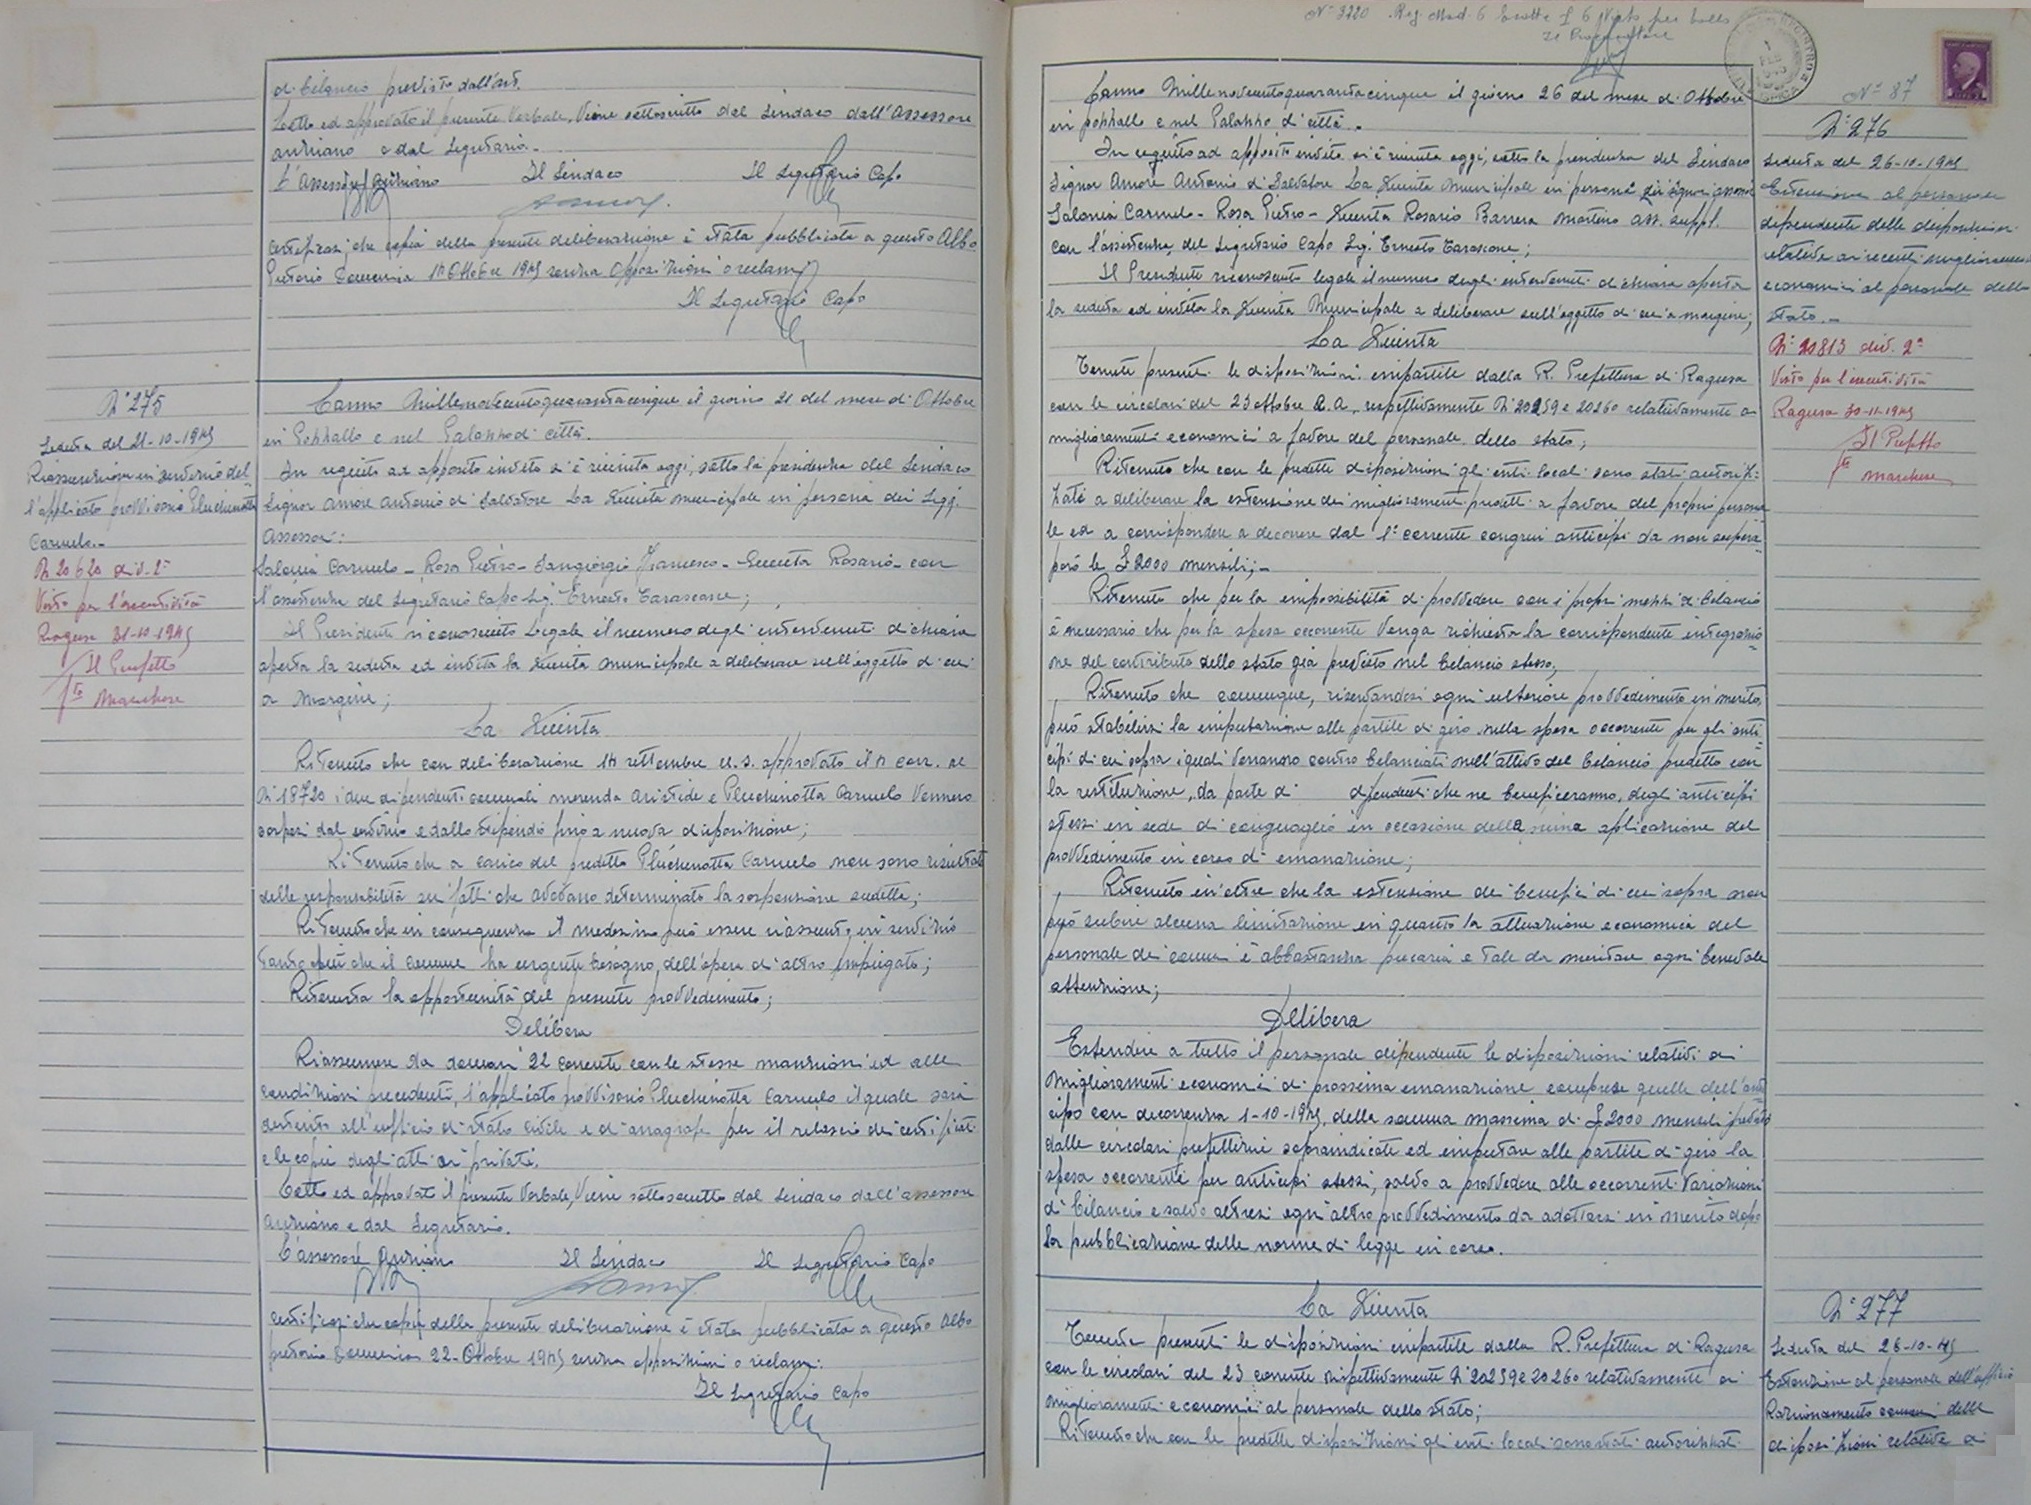 di bilancio previsto dall'art.
Letto ed approvato il presente Verbale, Viene sottoscritto dal Sindaco dall'Assessore
anziano e dal Segretario.-
L'Assessore Anziano Il Sindaco Il Segretario Capo
Certificasi che copia della presente deliberazione è stata pubblicata a questo Albo
Pretorio Domenica 14 Ottobre 1945 senza opposizioni o reclami
Il Segretario Capo
N° 275
Seduta del 21-10-1945
Riassunzione in servizio del-
l'applicato provvisorio Pluchinotta
Carmelo.-
N 20620 div. 2ª
Visto per l'esecutività
Ragusa 31-10-1945
Il Prefetto
fto Marchese
L'anno Millenovecentoquarantacinque il giorno 21 del mese di Ottobre
in Pozzallo e nel Palazzo di città.
In seguito ad apposito invito si è riunita oggi, sotto la presidenza del Sindaco
Signor Amore Antonio di Salvatore La Giunta municipale in persona dei Sigg.
Assessori:
Salonia Carmelo - Rosa Pietro - Sangiorgio Francesco - Giunta Rosario - con
l'assistenza del Segretario Capo Sig. Ernesto Tarascone;
Il Presidente riconosciuto Legale il numero degli intervenuti dichiara
aperta la seduta ed invita la Giunta Municipale a deliberare sull'oggetto di cui
a Margine;
La Giunta
Ritenuto che con deliberazione 14 settembre u.s. approvato il 4 corr. al
N° 18720 i due dipendenti comunali Merenda Aristide e Pluchinotta Carmelo Vennero
sospesi dal servizio e dallo stipendio fino a nuova disposizione;
Ritenuto che a carico del predetto Pluchinotta Carmelo non sono risultati
delle responsabilità sui fatti che avevano determinato la sospensione sudetta;
Ritenuto che in conseguenza il medesimo può essere riassunto in servizio
tanto più che il Comune ha urgente bisogno dell'opera di altro impiegato;
Ritenuta la opportunità del presente provvedimento;
Delibera
Riassumere da domani 22 corrente con le stesse mansioni ed alle
condizioni precedenti, l'applicato provvisorio Pluchinotta Carmelo il quale sarà
destinato all'ufficio di stato civile e di anagrafe per il rilascio dei certificati
e le copie degli atti ai privati.
Letto ed approvato il presente Verbale, Viene sottoscritto dal Sindaco dall'assessore
anziano e dal Segretario.
L'assessore Anziano Il Sindaco Il Segretario Capo
Certificasi che copia della presente deliberazione è stata pubblicata a questo Albo
pretorio Domenica 22-Ottobre 1945 senza opposizioni o reclami.
Il Segretario Capo
N° 3220 Reg. Mod. 6 Esatte £ 6 Visto per bollo
Il Procuratore
N° 87
L'anno Millenovecentoquarantacinque il giorno 26 del mese di Ottobre
in pozzallo e nel Palazzo di città.
In seguito ad apposito invito si è riunita oggi, sotto la presidenza del Sindaco
Signor Amore Antonio di Salvatore La Giunta Municipale in persona dei Signori assessori
Salonia Carmelo - Rosa Pietro - Giunta Rosario Barrera Martino ass. suppl.
con l'assistenza del Segretario Capo Sig. Ernesto Tarascone;
Il Presidente riconosciuto legale il numero degli intervenuti dichiara aperta
la seduta ed invita la Giunta Municipale a deliberare sull'oggetto di cui a margine;
La Giunta
Tenute presenti le disposizioni impartite dalla R. Prefettura di Ragusa
con le circolari del 23 ottobre c.a., rispettivamente N° 20259 e 20260 relativamente a
miglioramenti economici a favore del personale dello stato;
Ritenuto che con le predette disposizioni gli enti locali sono stati autoriz-
zati a deliberare la estensione dei miglioramenti predetti a favore del proprio persona
le ed a corrispondere a decorrere dal 1° corrente congrui anticipi da non supera-
però le £ 2000 mensili;-
Ritenuto che per la impossibilità di provvedere con i propri mezzi di bilancio
è necessario che per la spesa occorrente Venga richiesta la corrispondente integrazio-
ne del contributo dello stato già previsto nel bilancio stesso;
Ritenuto che comunque, riservandosi ogni ulteriore provvedimento in merito,
può stabilirsi la imputazione alle partite di giro nella spesa occorrente per gli anti-
cipi di cui sopra i quali Verranno contro bilanciati nell'attivo del bilancio predetto con
la restituzione, da parte di dipendenti che ne beneficeranno, degli anticipi
stessi in sede di conguaglio in occasione della prima applicazione del
provvedimento in corso di emanazione;
Ritenuto in'oltre che la estensione dei benefici di cui sopra non
può subire alcuna limitazione in quanto la situazione economica del
personale dei comuni è abbastanza precaria e tale da meritare ogni benevola
attenzione;
Delibera
Estendere a tutto il personale dipendente le disposizioni relative ai
Miglioramenti economici di prossima emanazione comprese quelle dell'anti
cipo con decorrenza 1-10-1945, della somma massima di £ 2000 mensili previsto
dalle circolari prefettizie sopraindicate ed imputare alle partite di giro la
spesa occorrente per anticipi stessi, salvo a provvedere alle occorrenti Variazioni
di bilancio e salvo altresì ogni altro provvedimento da adottarsi in merito dopo
la pubblicazione delle norme di legge in corso.
La Giunta
Tenute presenti le disposizioni impartite dalla R. Prefettura di Ragusa
con le circolari del 23 corrente rispettivamente N 20259 e 20260 relativamente ai
miglioramenti economici al personale dello stato;
Ritenuto che con le predette disposizioni gli enti locali sono stati autorizzati
N° 276
Seduta del 26-10-1945
Estensione al personale
dipendente delle disposizioni
relative ai recenti miglioramenti
economici al personale dello
stato.-
N° 20813 div. 2ª
Visto per l'esecutività
Ragusa 30-11-1945
Il Prefetto
fto Marchese
N° 277
Seduta del 26-10-45
Estensione al personale dell'ufficio
Razionamento consumi delle
disposizioni relative ai